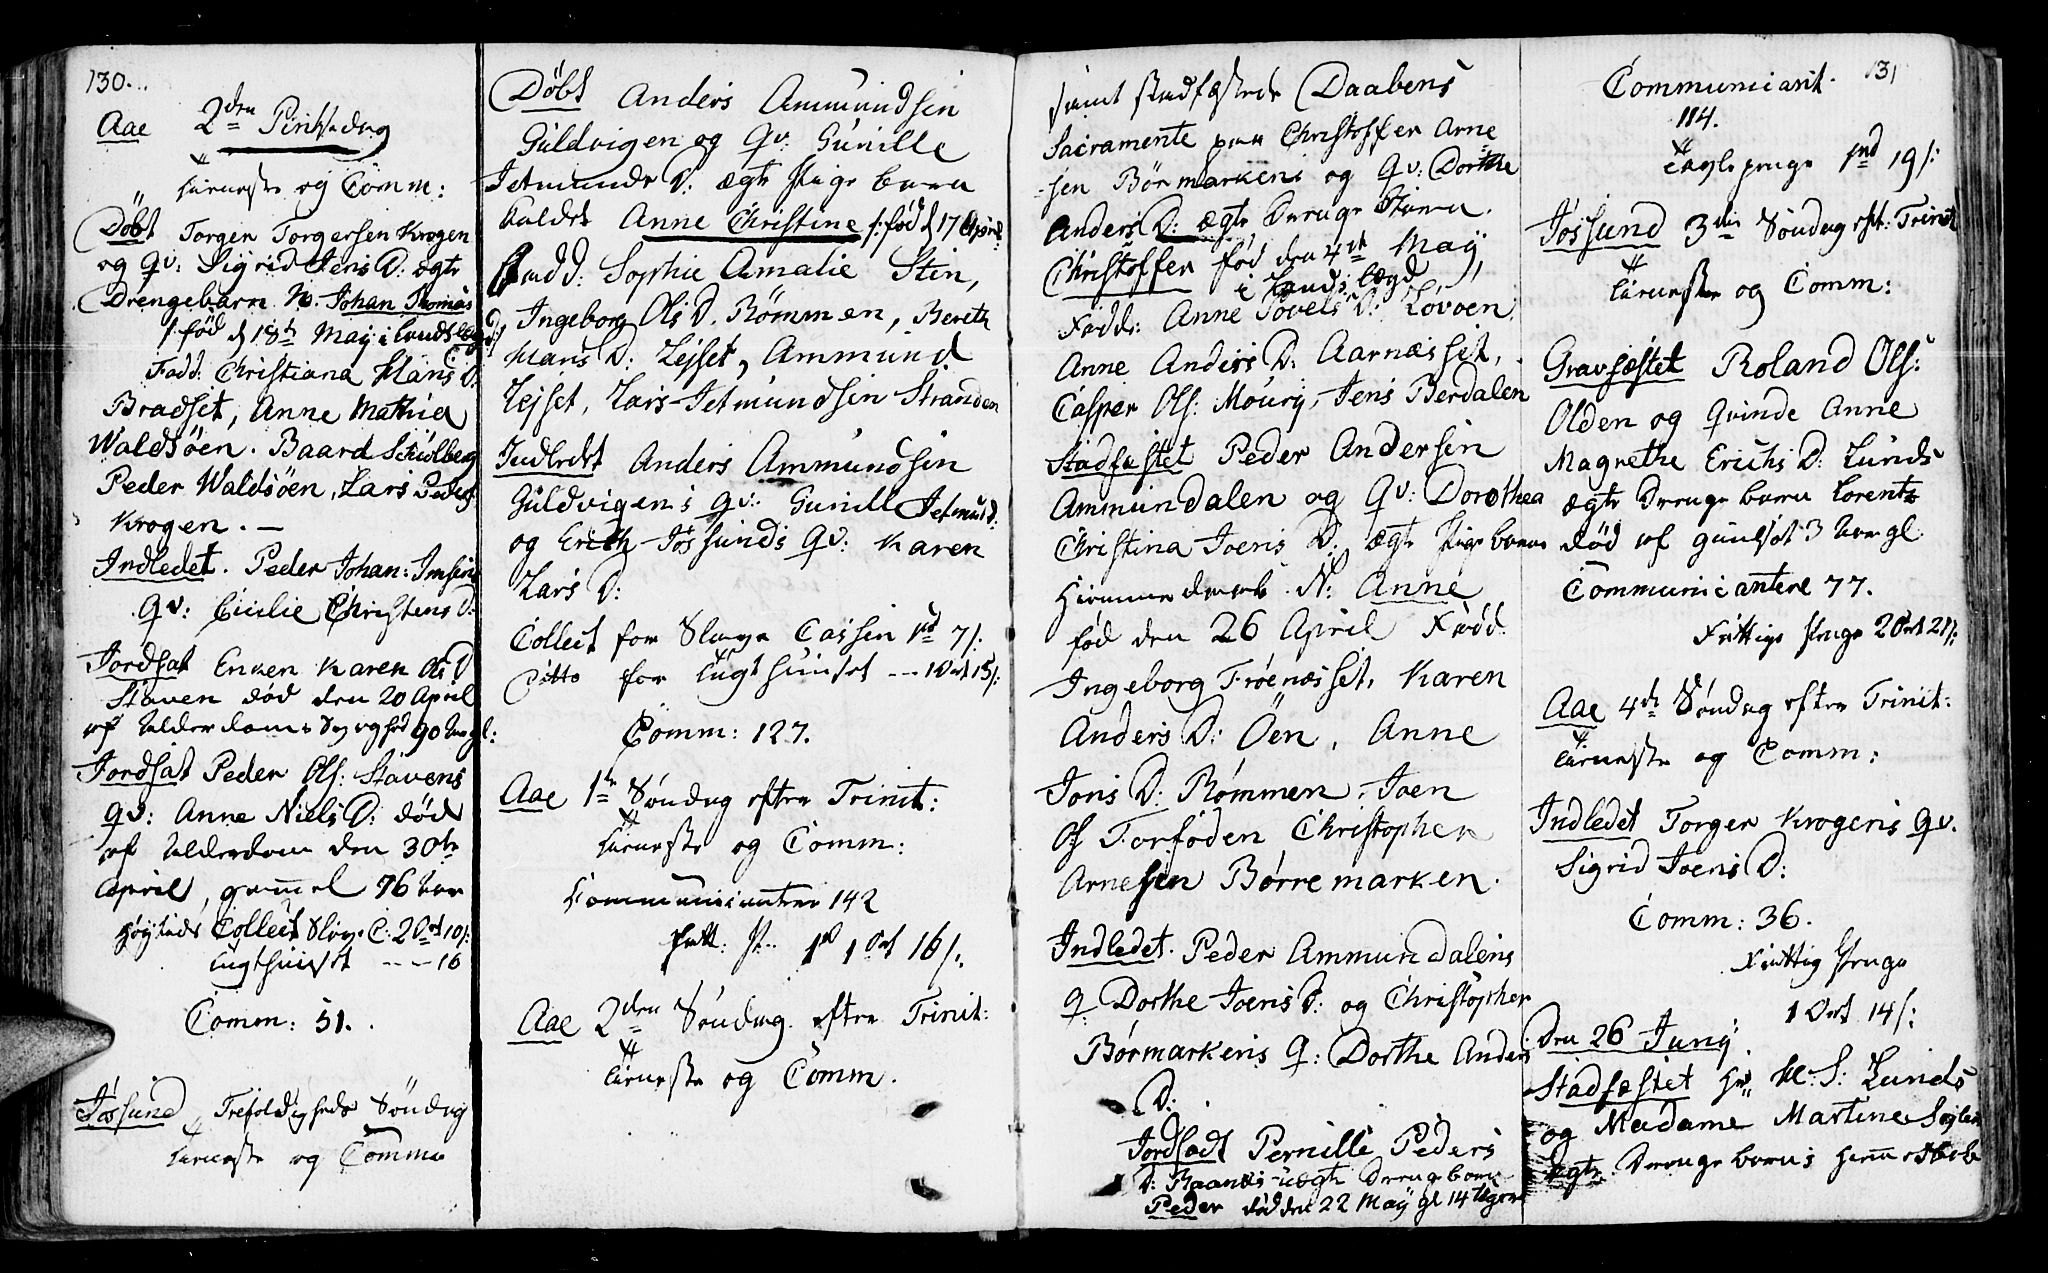 130.
Aae 2den Pintsedag
Tieneste og Comm:
Døbt Torger Torgersen Krogen
og Qv: Sigrid Jens D: ægte
Drengebarn N. Johan Thomas
/: fød d 18de May i Lands lægd :/
Fadd: Christiana Hans D:
Bradset, Anne Mathiæ
Waldsøen. Baard Schiølberg
Peder Waldsøen, Lars Peders:
Krogen. —
Indledet. Peder Johan: Imsens
Qv: Cicilie Christens D:
Jordsat Enken Karen Ols D
Staven død den 20 April
af Alderdoms Svaghed 90 Aar gl:
Jordsat Peder Ols: Stavens
Qv: Anne Niels D: død
af Alderdom den 30te
April, gamel 76 Aar
Høytids Collect Slav: C: 2 Ort 10 /:
Tugthuuset --- 16
Comm: 51.
Jøssund, Trefoldigheds Søndag
Tieneste og Comme
Døbt Anders Ammundsen
Guldvigen og Qv: Gunille
Jetmunds D: ægte Pige barn
kaldet Anne Christine /: fød d 17 April:
Fadd: Sophie Amalie Stin,
Ingeborg Ols D. Rømmen, Bereth
Hans D: Lejset, Ammund
Lejset, Lars Jetmundsen Stranden
Indledet Anders Ammundsen
Guldvigens Qv: Gunill Jetmund:
og Erich Jøssunds Qv: Karen
Lars D:
Collect for Slave Cassen 1rd 7 /:
Ditto for Tugthuuset --- 1 Ort 15 /:
Comm: 127.
Aae 1te Søndag efter Trinit:
Tieneste og Comm:
Communicantere 142
1rd 1 Ort 16 /:
Aae 2den Søndag efter Trinit:
Tieneste og Comm.
samt stadfæstede Daabens
Sacramente paa Christoffer Arne
-sen Børmarkens og Qv: Dorthe
Anders D: ægte Drenge Barn.
Christoffer fød den 4de May,
i Lands lægd
Fadd: Anne Povels D: Lovoen
Anne Anders D: Aarnæsset,
Casper Ols: Moury, Jens Berdalen
Stadfæstet Peder Andersen
Ammundalen og Qv: Dorothea
Christina Joens D: ægte Pige barn
Hiemmedøbt N: Anne
fød den 26 April Fadd.
Ingeborg Frøenæsset, Karen
Anders D: Öen, Anne
Joris D: Rømmen, Joen
Ols Torfoden Christopher
Arnesen Børremarken.
Indledet. Peder Ammundalens
Q: Dorthe Joens D: og Christopher
Børmarkens Q: Dorthe Anders
D:
Jordsadt Pernille Peders
D: Raanæs uægte Drengebarn
Peder død den 22 May gl 14 Uger
Communicant. 131
114.
Tavle penge 1rd 19 /:
Jøssund 3die Søndag eft: Trinit
Tieneste og Comm:
Gravfæstet Roland Ols:
Olden og Qvinde Anne
Magrethe Erichs D: Lunds
ægte Drenge barn Lorentz
død af guulsot 3 Aar gl
Communicantere 77.
Fattige Penge 2 Ort 21 /:
Aae 4de Søndag efter Trinit:
Tieneste og Comm:
Indledet Torger Krogens Qv.
Sigrid Joens D:
Comm: 36.
Fattig Penge
1 Ort 14 /:
Den 26 Juny
Stadfæstet Hr: M: S: Lunds
og Madame Martine
ægte Drenge barns